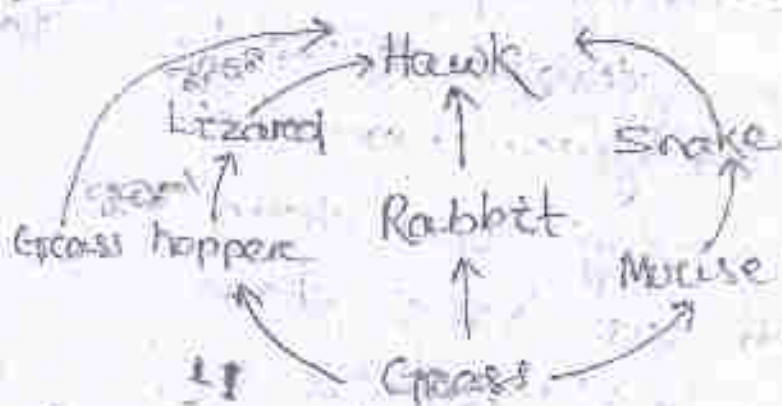 Hawk
Lizard
Snake
Grass hopper
Rabbit
Mouse
Grass